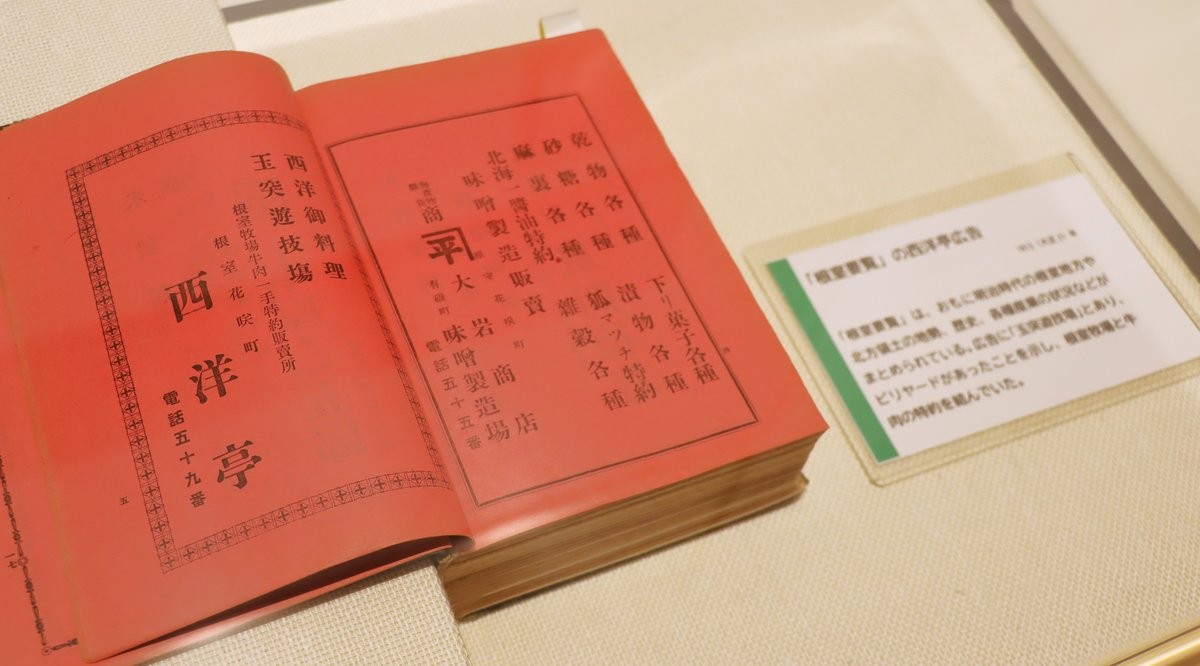 乾物各種 下リ菓子各種
砂糖各種 漬物各種
麻裏各種 狐マッチ特約
北海一醬油特約 雜穀各種
味噌製造販賣
根室花咲町
商 平 大岩商店
有磯町 味噌製造場
電話五十五番
西洋御料理
玉突遊技塲
根室牧場牛肉一手特約販賣所
根室花咲町
西洋亭
電話五十九番
五
一七
「根室要覧」の西洋亭広告
「根室要覧」は、おもに明治時代の根室地方や
北方領土の地勢、歴史、各種産業の状況などが
まとめられている。広告に「玉突遊技場」とあり、
ビリヤードがあったことを示し、根室牧場と牛
肉の特約を結んでいた。